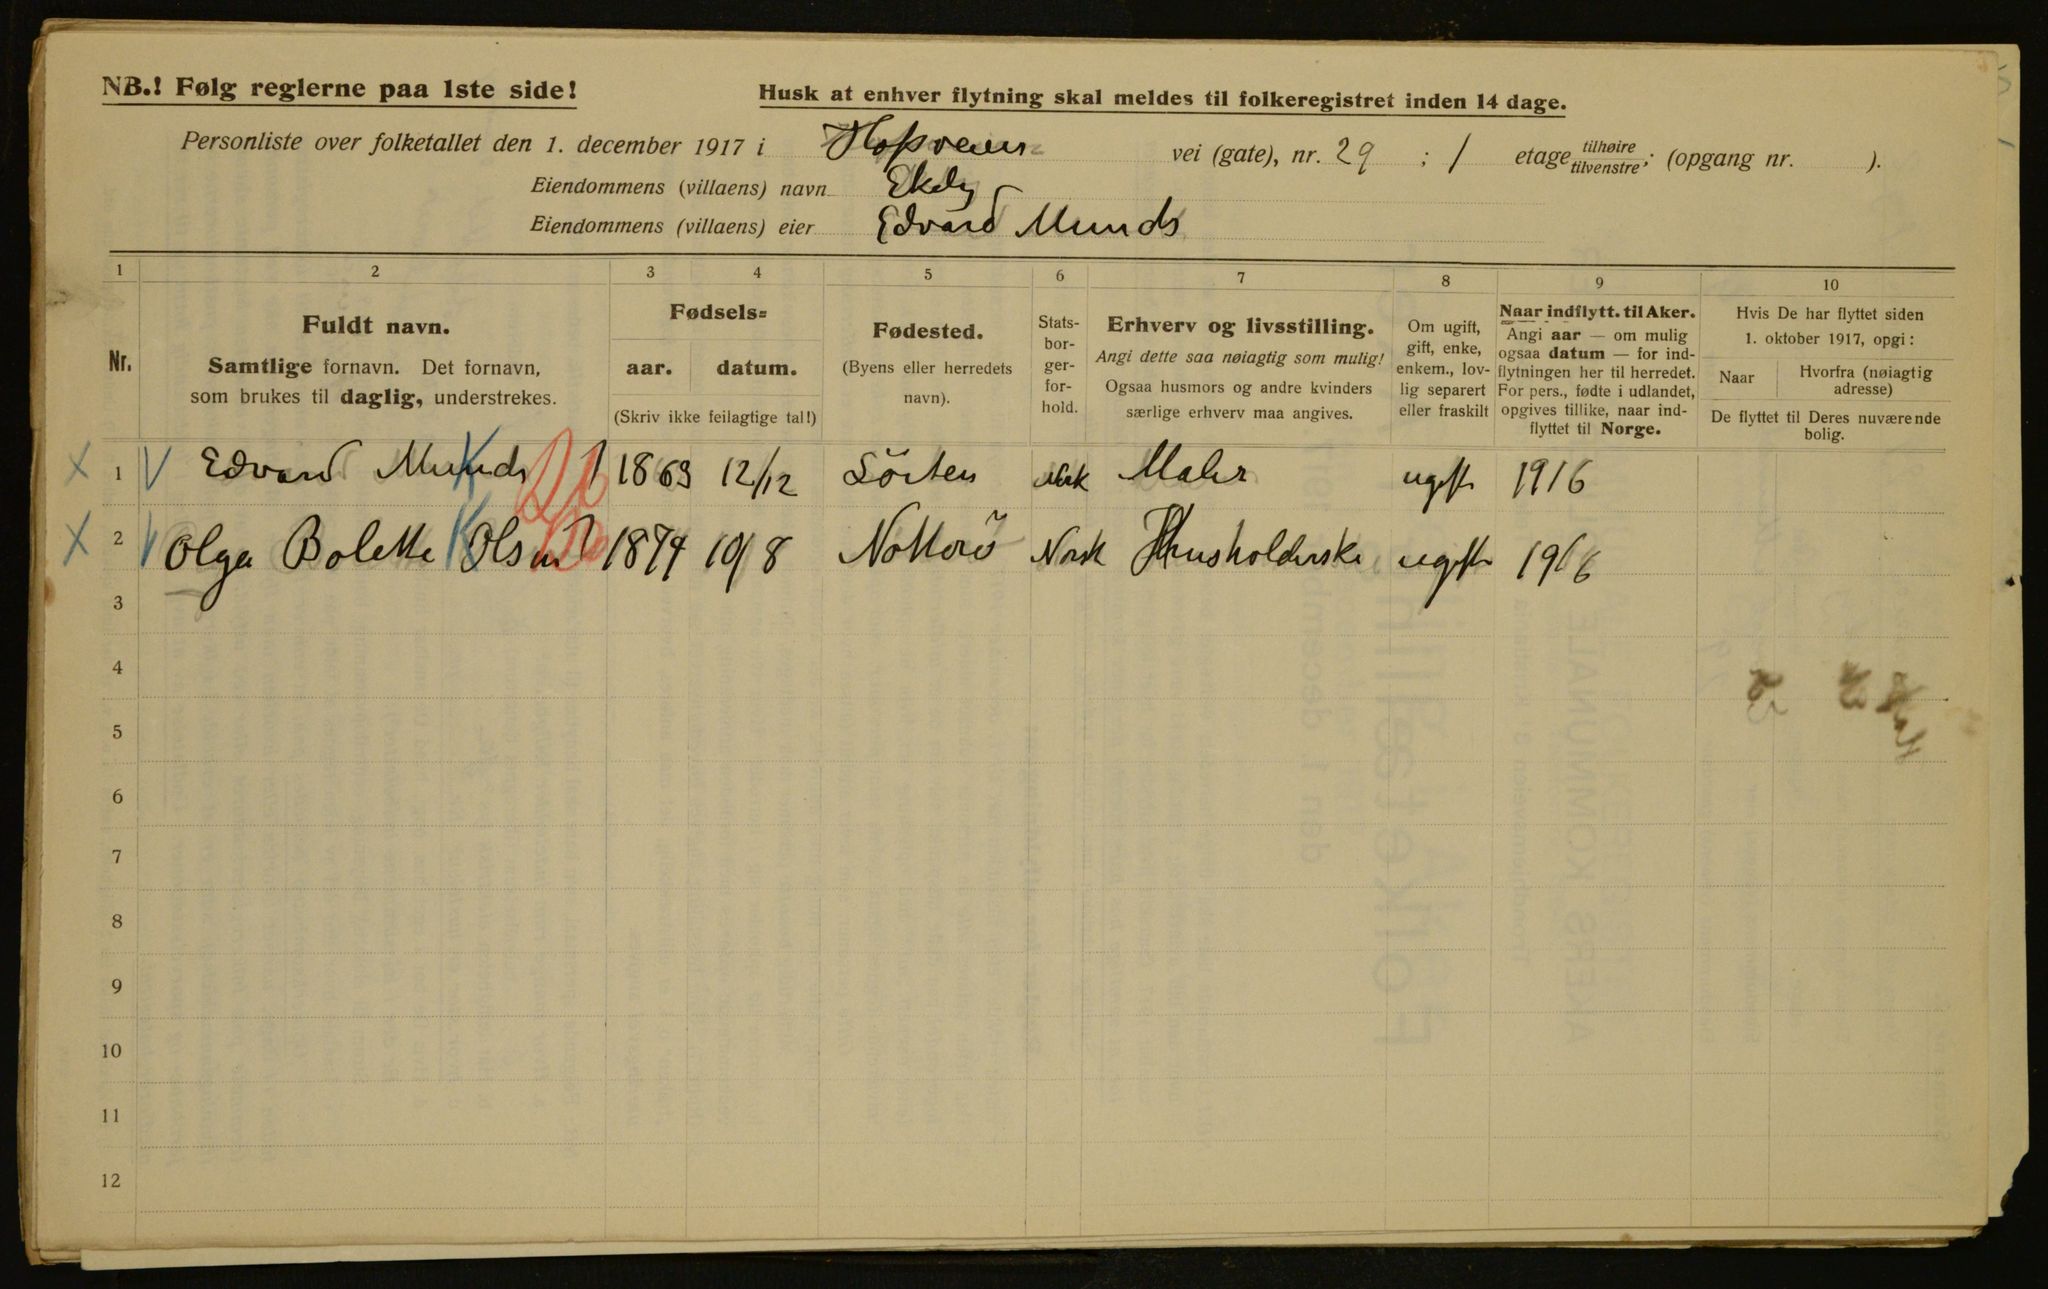 NB.! Følg reglerne paa 1ste side!
Husk at enhver flytning skal meldes til folkeregistret inden 14 dage.
Personliste over folketallet den 1. december 1917 i Hoffsveien vei (gate), nr. 29 ; 1 etage tilhøire tilvenstre; (opgang nr. ).
Eiendommens (villaens) navn Ekely
Eiendommens (villaens) eier Edvard Munch
1 2 3 4 5 6 7 8 9 10
Nr.
Fuldt navn.
Samtlige fornavn. Det fornavn,
som brukes til daglig, understrekes.
Fødsels=
aar. datum.
(Skriv ikke feilagtige tal!)
Fødested.
(Byens eller herredets
navn).
Stats-
bor-
ger-
for-
hold.
Erhverv og livsstilling.
Angi dette saa nøiagtig som mulig!
Ogsaa husmors og andre kvinders
særlige erhverv maa angives.
Om ugift,
gift, enke,
enkem., lov-
lig separert
eller fraskilt
Naar indflytt. til Aker.
Angi aar — om mulig
ogsaa datum — for ind-
flytningen her til herredet.
For pers., fødte i utlandet,
opgives tillike, naar ind-
flyttet til Norge.
Hvis De har flyttet siden
1. oktober 1917, opgi:
Naar Hvorfra (nøiagtig
adresse)
De flyttet til Deres nuværende
bolig.
X 1 V Edvard Munch K 1863 12/12 Löiten Norsk Maler ugift 1916
X 2 V Olga Bolette Olsen K 1874 10/8 Nötterö Norsk Husholderske ugift 1916
3
4
5
6
7
8
9
10
11
12